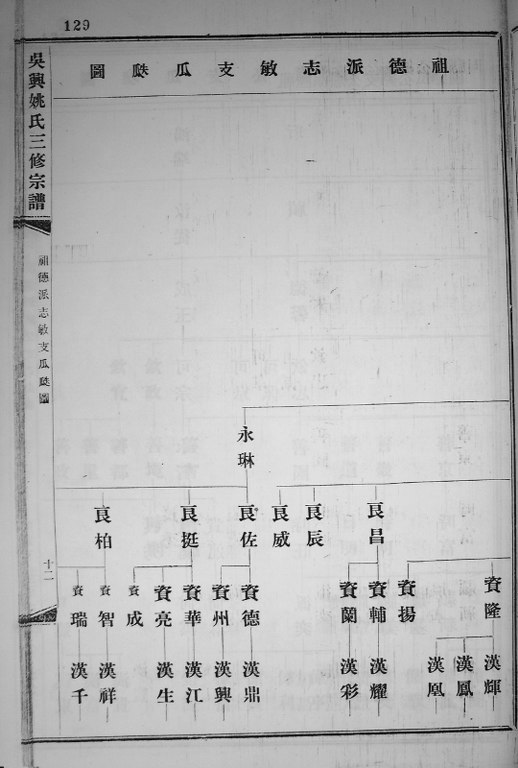 129
祖德派志敏支瓜瓞圖
永琳
良昌
良辰
良威
良佐
良挺
良柏
資隆
資揚
資輔
資蘭
資德
資州
資華
資亮
資成
資智
資瑞
漢輝
漢鳳
漢凰
漢耀
漢彩
漢鼎
漢興
漢江
漢生
漢祥
漢千
吳興姚氏三修宗譜
祖德派志敏支瓜瓞圖
十二